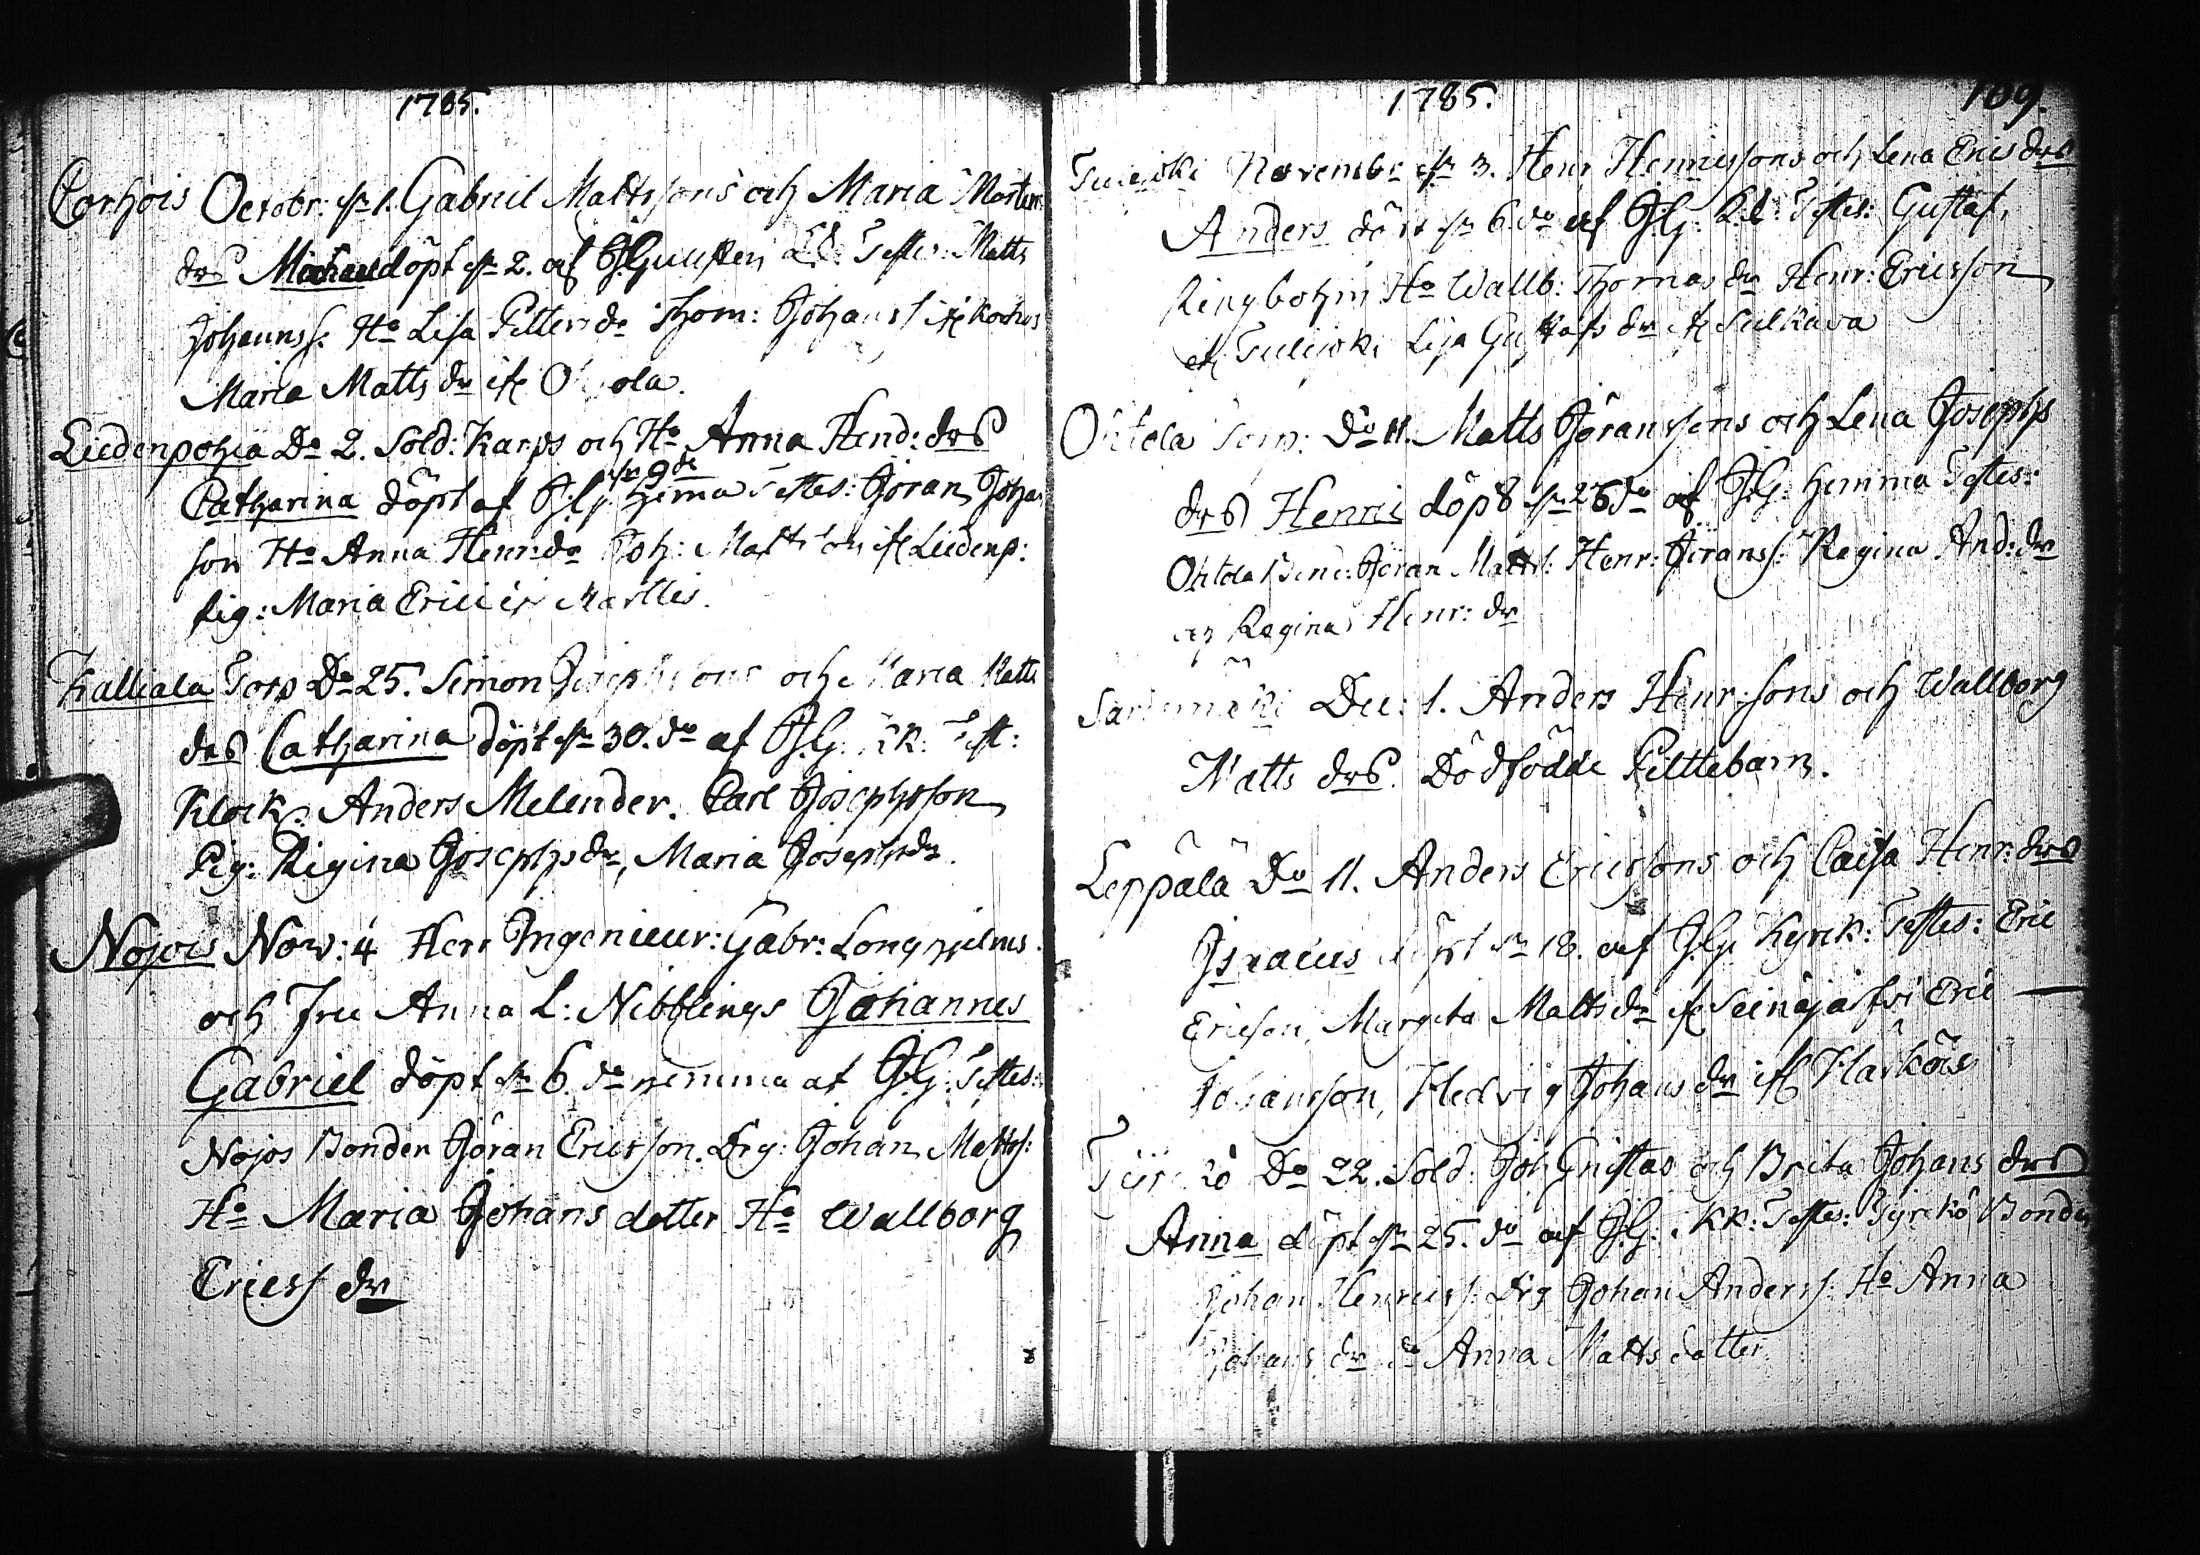 1785.
Corhois Octobr: d. 1. Gabriel Mattssons och Maria Mortens
drs Michael döpt d. 2. af Testes: Matts
Johanss: Ho Lisa Petters do Thom: Johanss if Korhos
Maria Matts dr if
Liedenpohia Do 2. Sold: Karps och Ho Anna Hend: drs
Catharina döpt af J.G. d. 9de hema Testes: Jöran Johan
son Ho Anna Henr: do Joh: Mattson if Liedenp:
Pig: Maria Eric
Kalliala Torp Do 25. Simon Josephsons och Maria Matts
drs Catharina döpt d. 30. do af J.G. i K.K. Test:
Klock: Anders Melender. Carl Josephsson
Pig: Regina Josephsdr, Maria Josephsdr.
Nojois Nov: 4 Herr Ingenieur: Gabr:
och Fru Anna L: Nibblings Johannes
Gabriel döpt d. 6. do hemma af J.G: Testes:
Nojos Bonden Jöran Ericsson. Drg: Johan Matts:
Ho Maria Johans dotter Ho Wallborg
Ericss dr
1785.
169.
Novembr d. 3. Henr Henricssons och Lena Erics drs
Anders döpt d. 6. do af J.G. Testes: Gustaf
Ringbohm Ho Wallb: Thomas dr Henr: Ericsson
Lisa Gustafs dr if Sulkava
Ohtola Torp: Do 11. Matts Jöranssons och Lena Josephs
drs Henric döpt d. 26 do af J.G: hemma Testes:
Ohtola Bond: Jöran Matts: Henr: Jöranss: Regina And: dr
Regina Henr: dr
Dec: 1. Anders Henr:sons och Wallborg
Matts drs. Dödfödde Piltebarn.
Leppälä Do 11. Anders Ericssons och Caisa Henr: drs
Isracus döpt d. 18. af J.G. Kyrk: Testes: Eric
Ericson, Margeta Matts dr if Seinäjärfvi Eric
Johansson, Hedvig Johans dr if Harköis
Do 22. Sold: Joh Gristas och Brita Johans drs
Anna döpt d. 25. do af J.G: i KK: Testes: Tyrckö Bonden
Johan Henricss: Drg Johan Anderss: Ho Anna
Johans dr do Anna Matts dotter